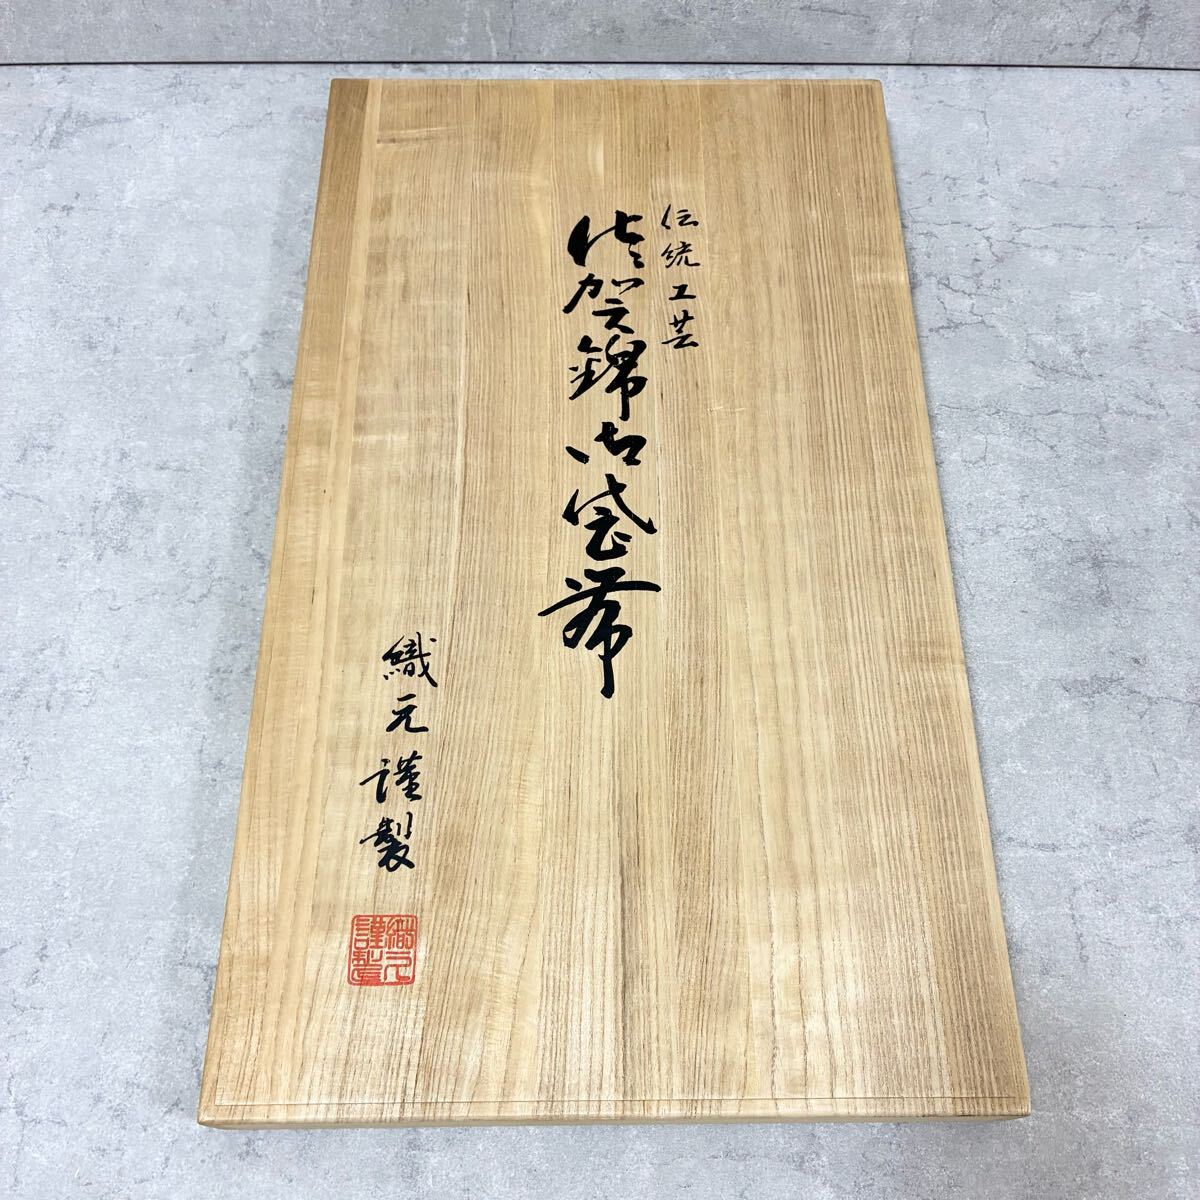 伝統工芸
佐賀錦御袋帯
織元謹製
織元
謹製